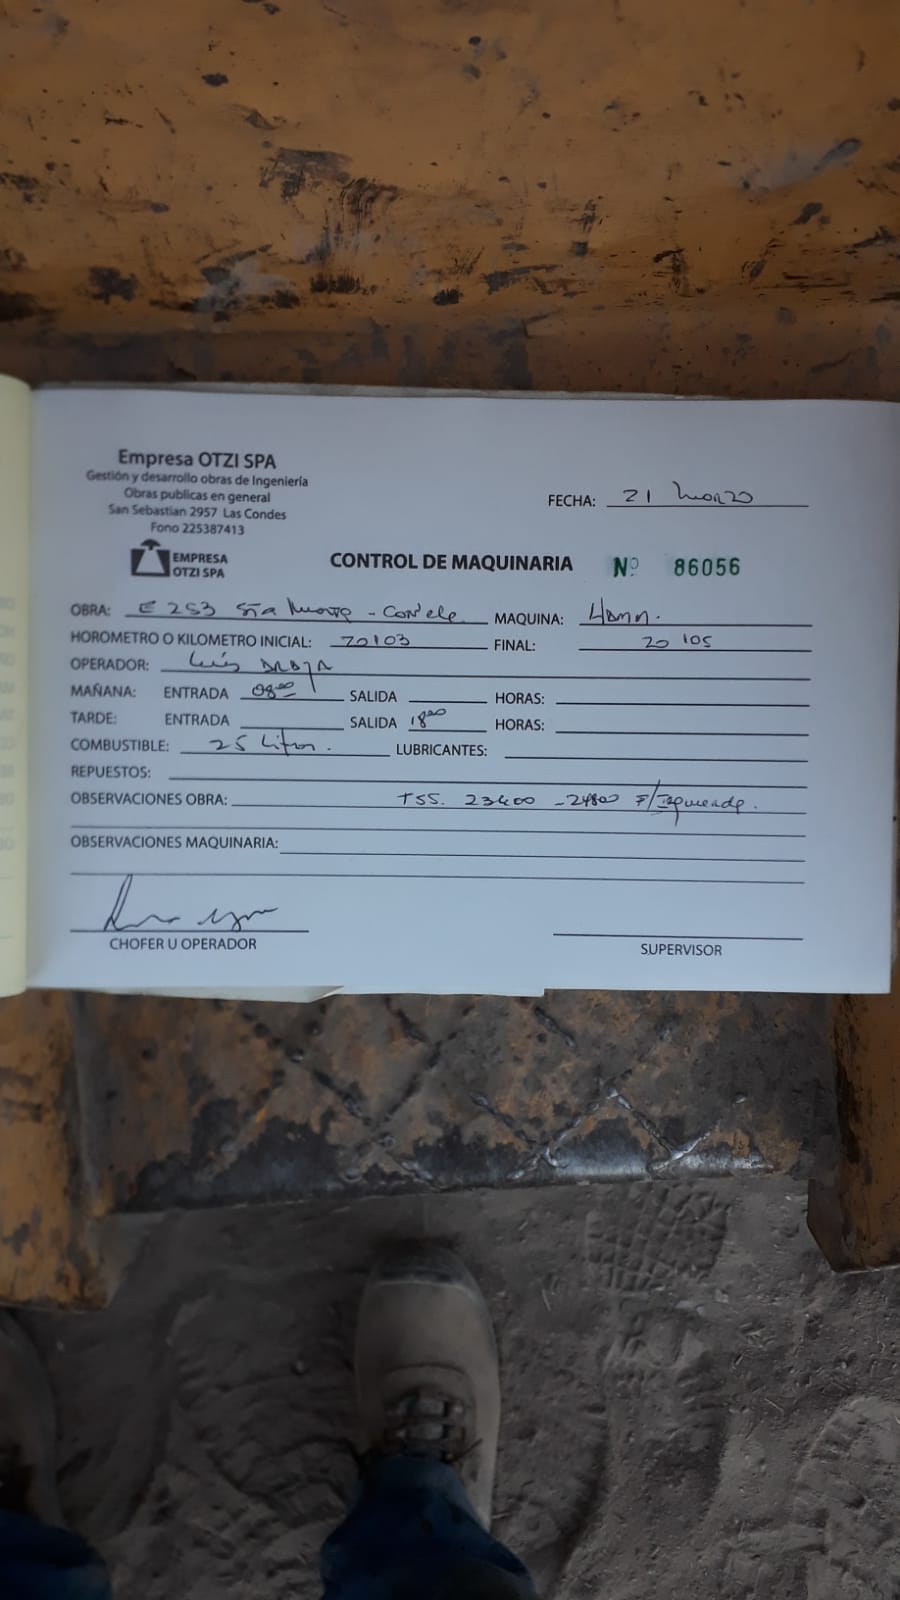 Empresa OTZI SPA
Gestión y desarrollo obras de Ingeniería
Obras publicas en general
San Sebastian 2957 Las Condes
Fono 225387413
EMPRESA
OTZI SPA
FECHA: 21 Marzo
CONTROL DE MAQUINARIA Nº 86056
OBRA: E 253 Sta Marta - MAQUINA: Hamm.
HOROMETRO O KILOMETRO INICIAL: 20103 FINAL: 20105
OPERADOR: Luis
MAÑANA: ENTRADA 08:00 SALIDA HORAS:
TARDE: ENTRADA SALIDA 18:00 HORAS:
COMBUSTIBLE: 25 Litros. LUBRICANTES:
REPUESTOS:
OBSERVACIONES OBRA: TSS. 23400 - 24800 F/Izquierda.
OBSERVACIONES MAQUINARIA:
CHOFER U OPERADOR
SUPERVISOR